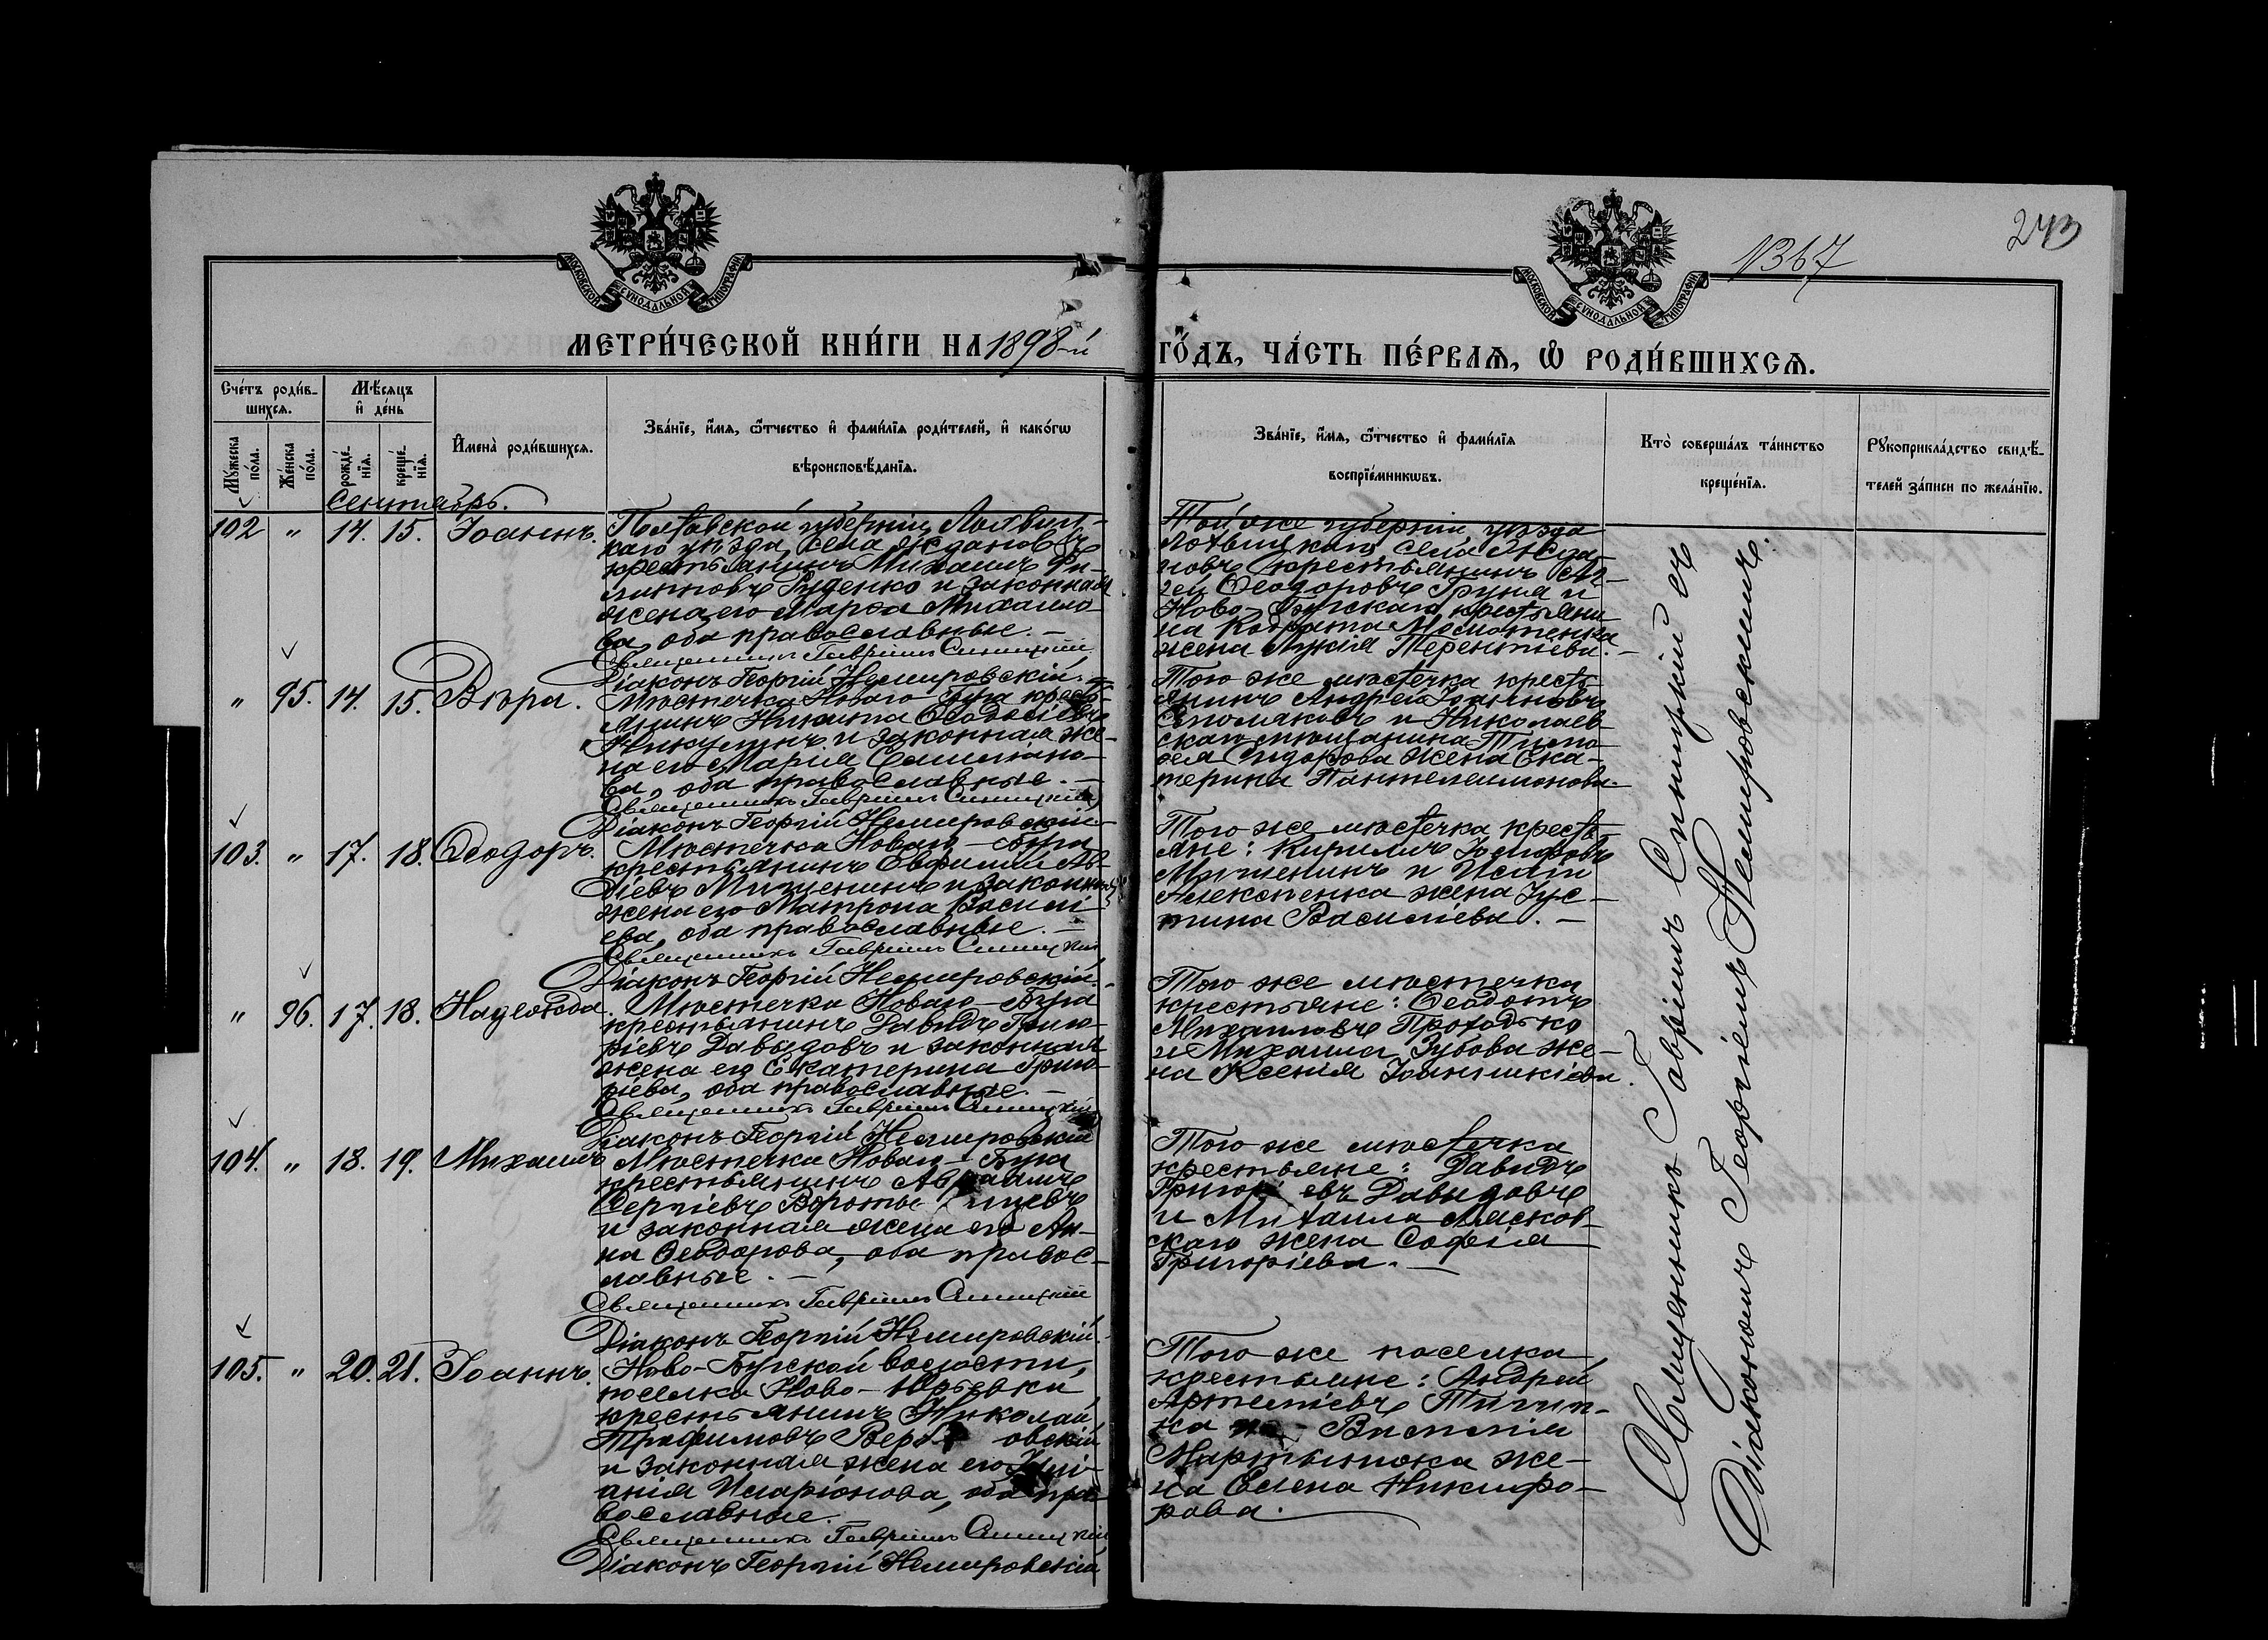 243
1367
МОСКОВСКОЙ СУНОДАЛЬНОЙ ТИПОГРАФІИ
МОСКОВСКОЙ СУНОДАЛЬНОЙ ТИПОГРАФІИ
МЕТРИ́ЧЕСКОЙ КНИ́ГИ НА 1898-й ГО́ДЪ, ЧА́СТЬ ПЕ́РВАѦ, Ѡ҆ РОДИ́ВШИХСѦ.
Сче́тъ роди́в-
шихсѧ.
Мѣ́сѧцъ
и҆ де́нь
Мꙋ́жеска
по́ла.
Же́нска
по́ла.
рожде́-
нїѧ.
креще́-
нїѧ.
И҆мена̀ роди́вшихсѧ.
Зва́нїе, и҆́мѧ, ѻ҆́тчество и҆ фами́лїѧ роди́телей, и҆ како́гѡ
вѣроисповѣ́данїѧ.
Зва́нїе, и҆́мѧ, ѻ҆́тчество и҆ фами́лїѧ
воспрїе́мникѡвъ.
Кто̀ соверша́лъ та́инство
креще́нїѧ.
Рꙋкоприкла́дство свидѣ́-
телей за́писи по жела́нїю.
Сентябрь.
102 " 14. 15. Іоаннъ.
Полтавской губерніи, Лохвиц-
каго уѣзда, села Ждановъ
крестьянинъ Михаилъ Фи-
липповъ Руденко и законная
жена его Марѳа Михаило-
ва, оба православные. —
Священникъ Гавріилъ Синицкій
Діаконъ Георгій Немировскій.
Той же губерніи, уѣзда
Лохвицкаго села Жда-
новъ крестьянинъ
Ѳеодоровъ Груня и
Ново-Бугскаго крестьяни-
на
жена Лукія Терентіева. —
" 95. 14. 15. Вѣра.
Мѣстечка Новаго-Буга кресть-
янинъ Никита Ѳеодосіевъ
Никулинъ и законная же-
на его Марія Самсоно-
ва, оба православные. —
Священникъ Гавріилъ Синицкій
Діаконъ Георгій Немировскій.
Того же мѣстечка кресть-
янинъ Андрей Іоанновъ
и Николаев-
скаго мѣщанина Тимо-
ѳея Сидорова жена Ека-
терина Пантелеимонова.
103. " 17. 18. Ѳеодоръ.
Мѣстечка Новаго-Буга
крестьянинъ Евфимій Ав-
діевъ Мишенинъ и законная
жена его Матрона Василі-
ева, оба православные. —
Священникъ Гавріилъ Синицкій
Діаконъ Георгій Немировскій.
Того же мѣстечка кресть-
яне: Кириллъ Іосифовъ
Мишенинъ и Исаіи
Алексѣенка жена Іус-
тина Василіева. —
" 96. 17. 18. Надежда.
Мѣстечка Новаго-Буга
крестьянинъ Давидъ Григо-
ріевъ Давыдовъ и законная
жена его Екатерина Григо-
ріева, оба православные. —
Священникъ Гавріилъ Синицкій
Діаконъ Георгій Немировскій
Того же мѣстечка
крестьяне: Ѳеодотъ
Михаиловъ Проходько
и Михаила Зубова же-
на Ксенія Іоанникіева.
104. " 18. 19. Михаилъ
Мѣстечка Новаго-Буга
крестьянинъ Авраамъ
Сергіевъ Воротынцевъ
и законная жена его Ан-
на Ѳеодорова, оба правос-
лавные. —
Священникъ Гавріилъ Синицкій
Діаконъ Георгій Немировскій.
Того же мѣстечка
крестьяне: Давидъ
Григоріевъ Давыдовъ
и Михаила Лясков-
скаго жена Софія
Григоріева. —
105. " 20. 21. Іоаннъ.
Ново-Бугской волости,
поселка Ново-Юрьевки
крестьянинъ Николай
Трофимовъ
и законная жена его
Иларіонова, оба пра-
вославные.
Священникъ Гавріилъ Синицкій
Діаконъ Георгій Немировскій
Того же поселка
крестьяне: Андрей
Артеміевъ
Мартынюка же-
на Елена Никифо-
рова.
Священникъ Гавріилъ Синицкій съ
Діакономъ Георгіемъ Немировскимъ.